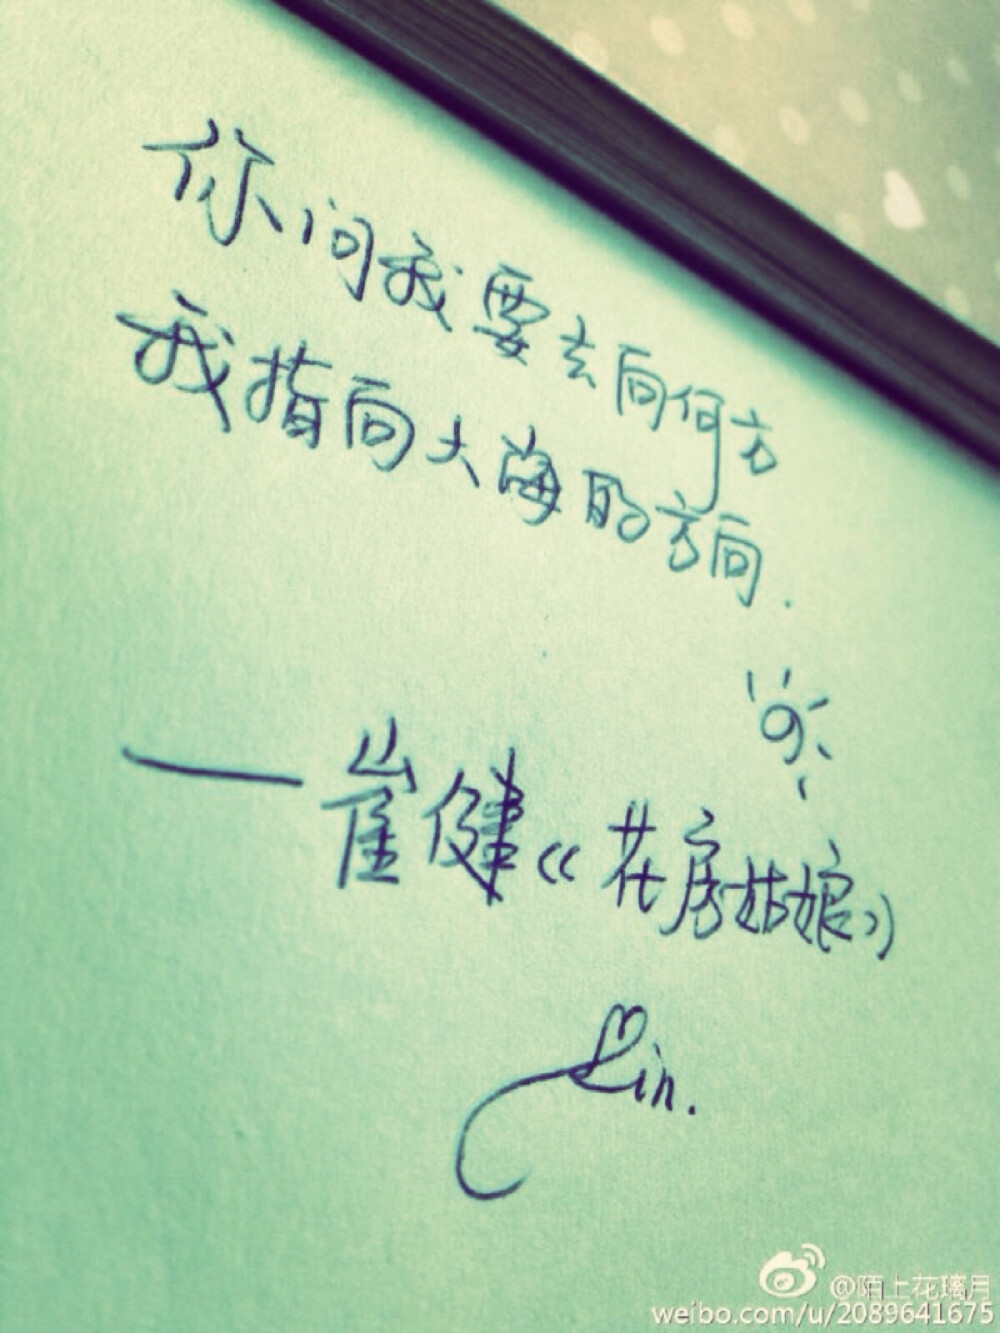 你问我要去向何方
我指向大海的方向.
——崔健《花房姑娘》
Lin.
@陌上花璃月
weibo.com/u/2089641675